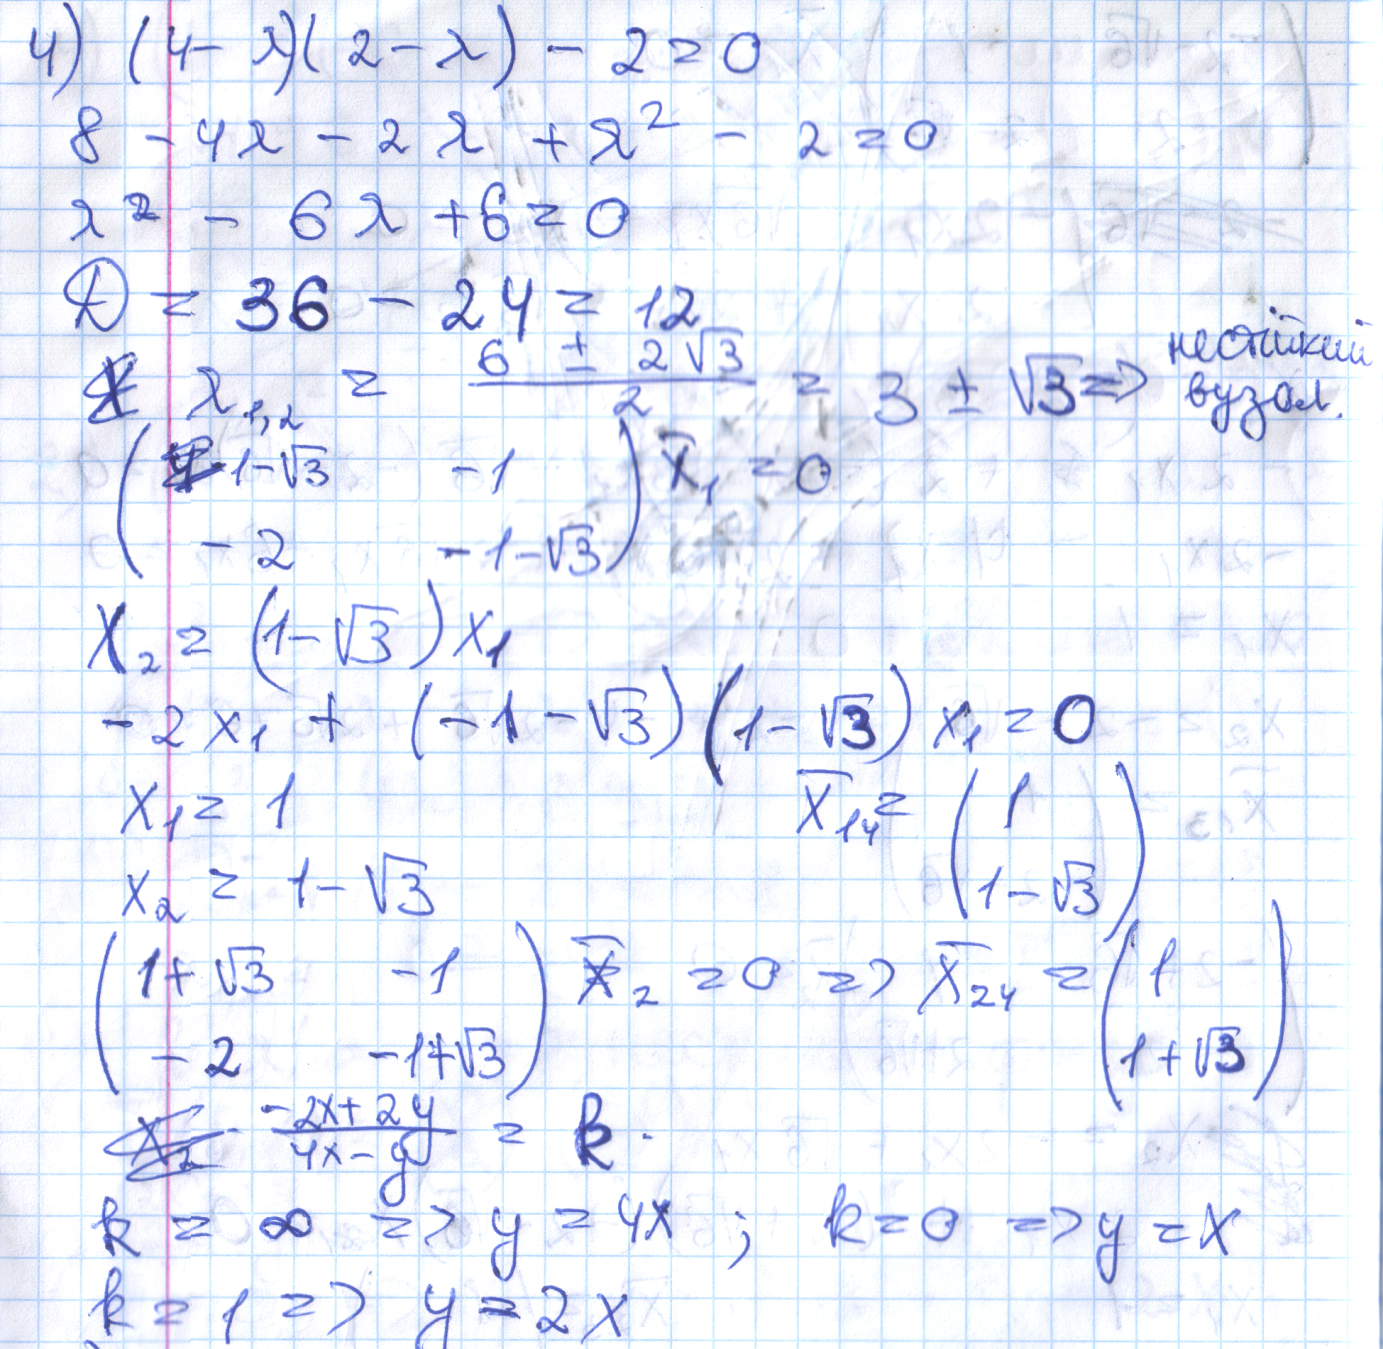 4) (4-λ)(2-λ) - 2 = 0
8 - 4λ - 2λ + λ² - 2 = 0
λ² - 6λ + 6 = 0
D = 36 - 24 = 12
λ₁,₂ = (6 ± 2√3)/2 = 3 ± √3 => нестійкий вузол.
( 1-√3 -1 ) X̄₁ = 0
( -2 -1-√3 )
X₂ = (1-√3)X₁
-2x₁ + (-1-√3)(1-√3)x₁ = 0
x₁ = 1 X̄₁₄ = ( 1
x₂ = 1-√3 1-√3 )
( 1+√3 -1 ) X̄₂ = 0 => X̄₂₄ = ( 1
( -2 -1+√3 ) 1+√3 )
(-2x+2y)/(4x-y) = k.
k = ∞ => y = 4x ; k = 0 => y = x
k = 1 => y = 2x